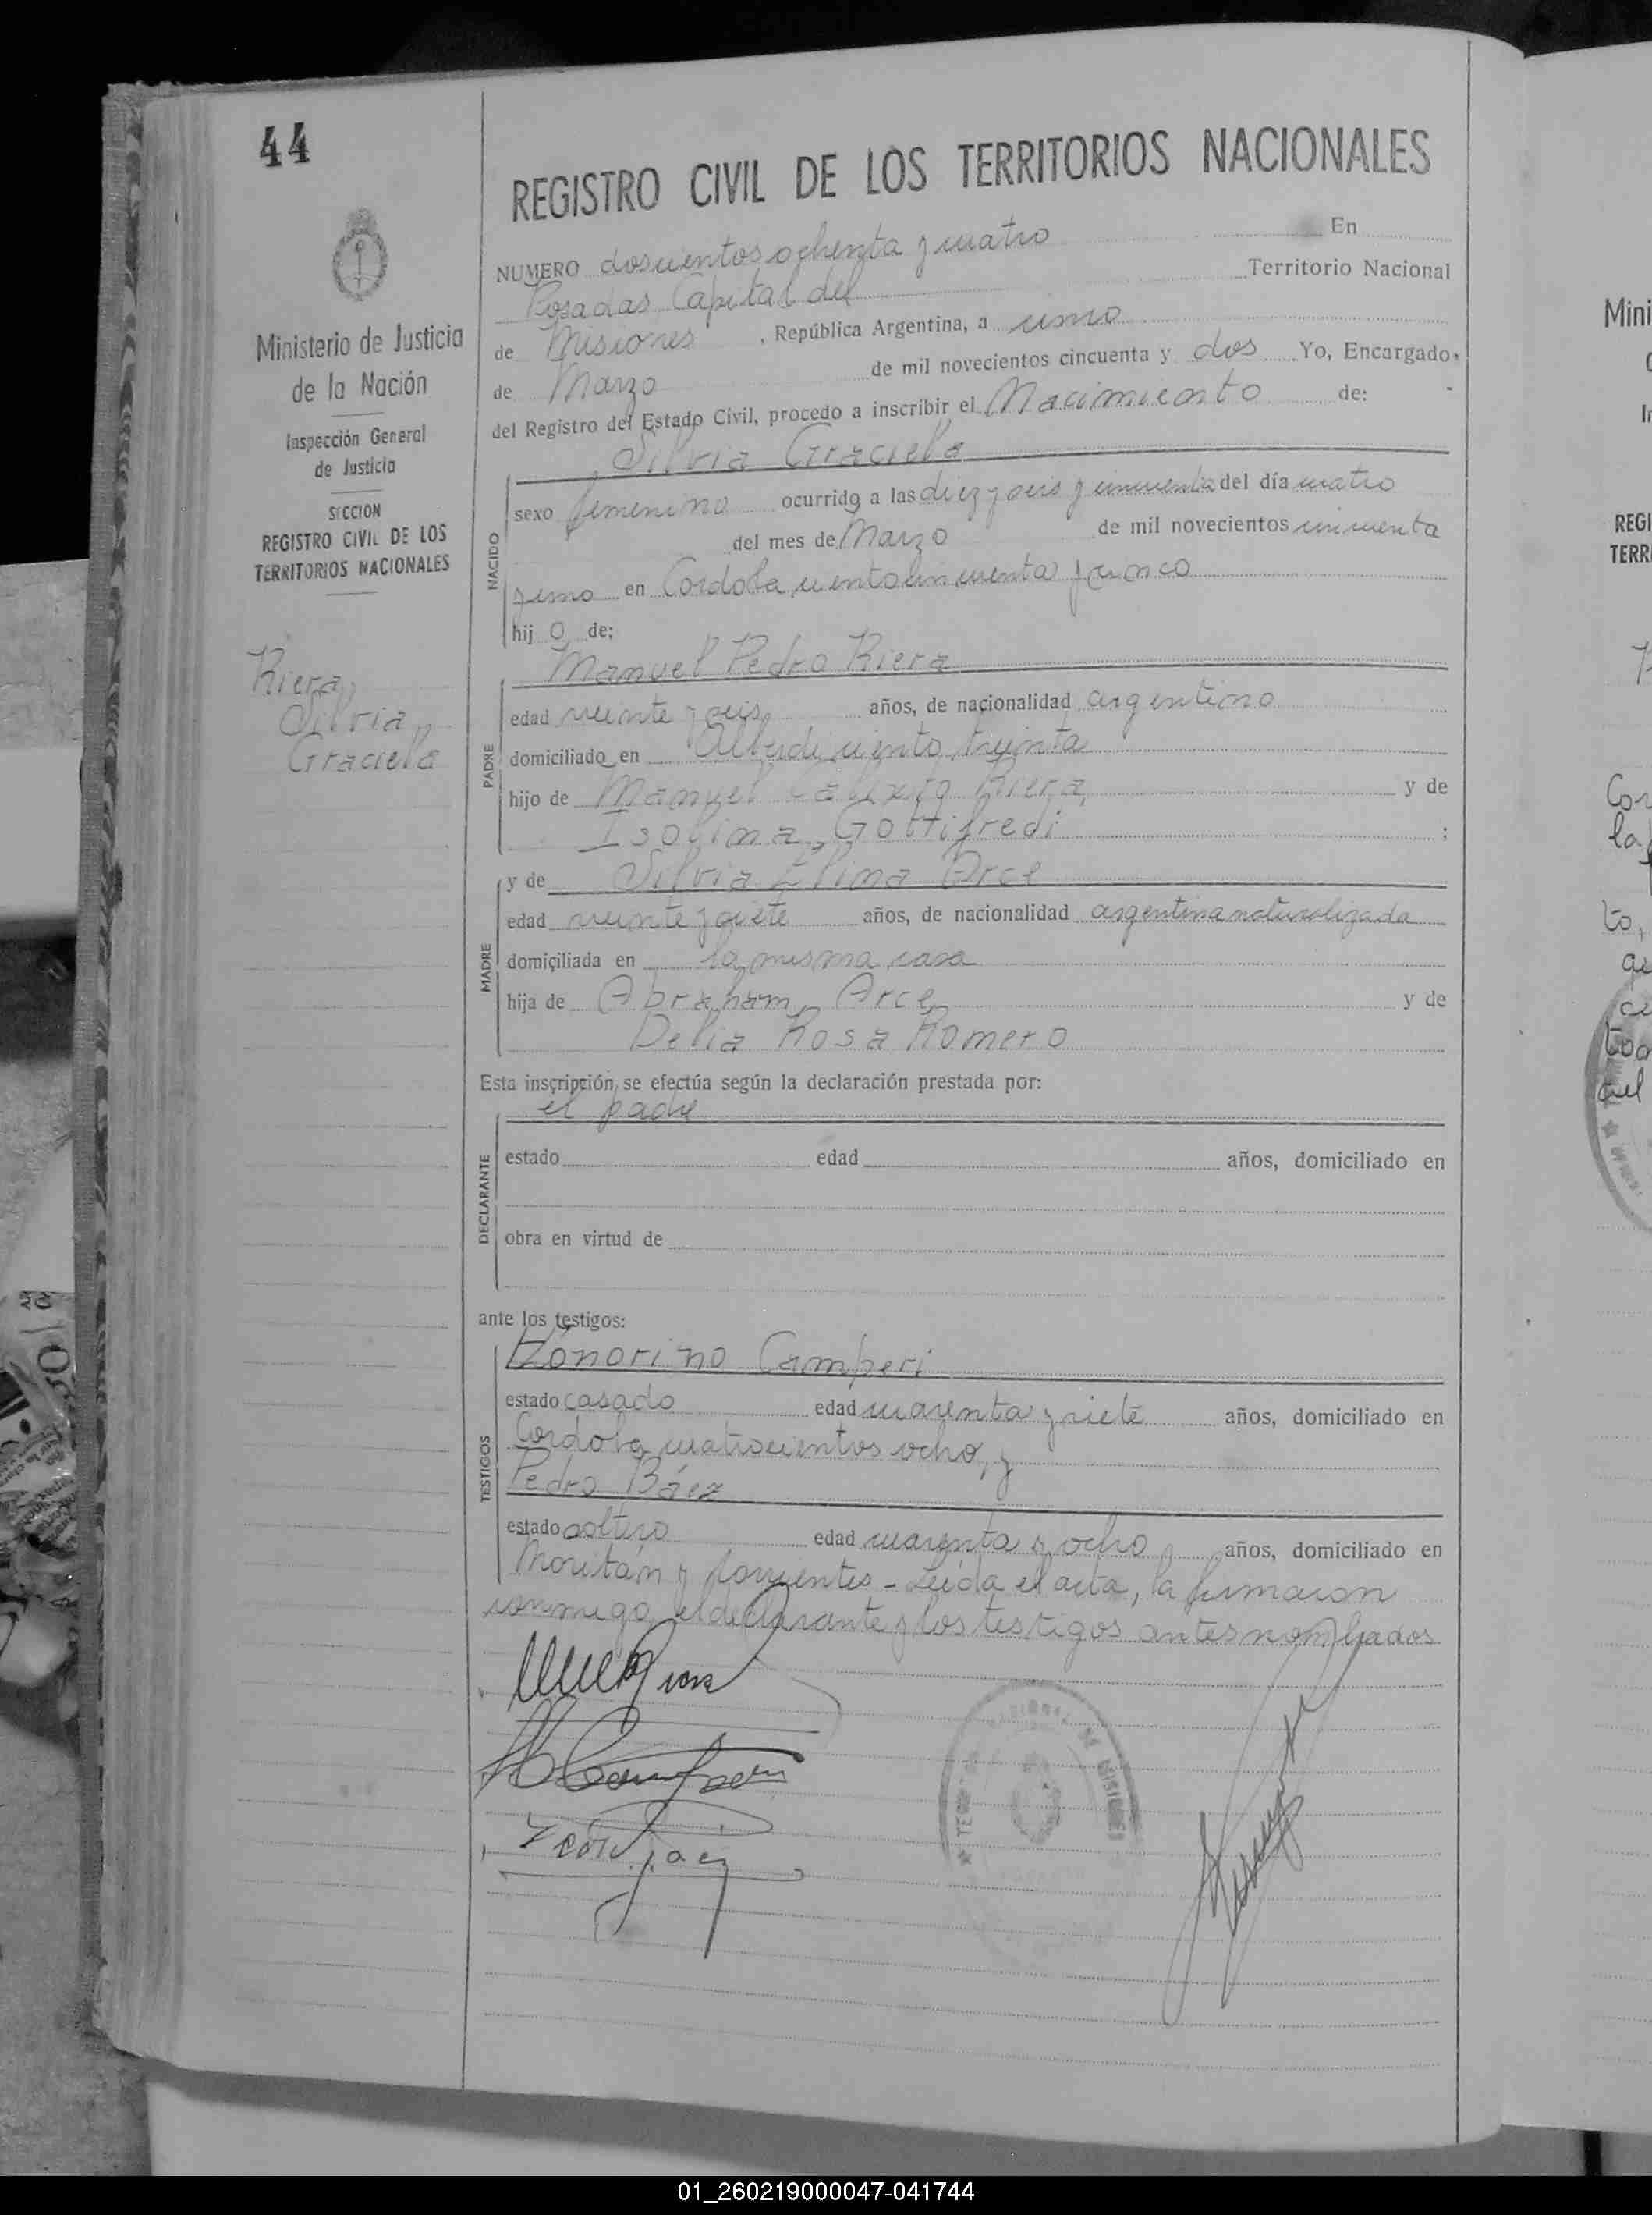 44
REGISTRO CIVIL DE LOS TERRITORIOS NACIONALES
NUMERO doscientos ochenta y cuatro En
Posadas Capital del Territorio Nacional
de Misiones, República Argentina, a uno
de Marzo de mil novecientos cincuenta y dos Yo, Encargado
del Registro del Estado Civil, procedo a inscribir el Nacimiento de:
Silvia Graciela
NACIDO
sexo femenino ocurrido a las diez y seis y cincuenta del día cuatro
del mes de Marzo de mil novecientos cincuenta
y uno en Cordoba ciento cincuenta y cinco
hij o de:
Manuel Pedro Riera
PADRE
edad veinte y seis años, de nacionalidad argentino
domiciliado en Alberdi ciento treinta
hijo de Manuel Calixto Riera y de
Isolina Gottifredi ;
MADRE
y de Silvia Elima Arce
edad veinte y siete años, de nacionalidad argentina naturalizada
domiciliada en la misma casa
hija de Abraham Arce y de
Delia Rosa Romero
Esta inscripción se efectúa según la declaración prestada por:
el padre
DECLARANTE
estado edad años, domiciliado en
obra en virtud de
ante los testigos:
TESTIGOS
Honorino Camperi
estado casado edad cuarenta y siete años, domiciliado en
Cordoba cuatrocientos ocho, y
Pedro Báez
estado soltero edad cuarenta y ocho años, domiciliado en
y Corrientes - Leída el acta, la firmaron
conmigo el declarante y los testigos antes nombrados
Ministerio de Justicia
de la Nación
Inspección General
de Justicia
SECCION
REGISTRO CIVIL DE LOS
TERRITORIOS NACIONALES
Riera
Silvia
Graciela
DE MISIONES
Mini
REGI
TERR
01_260219000047-041744